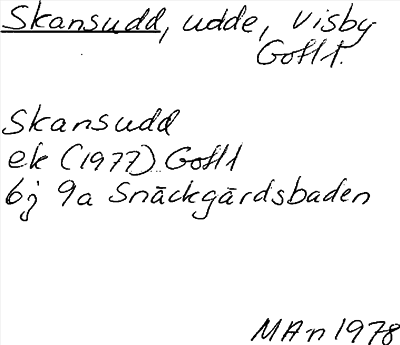 Skansudd, udde, Visby
Gotl.
Skansudd
ek (1977) Gotl
6j 9a Snäckgärdsbaden
MAn 1978